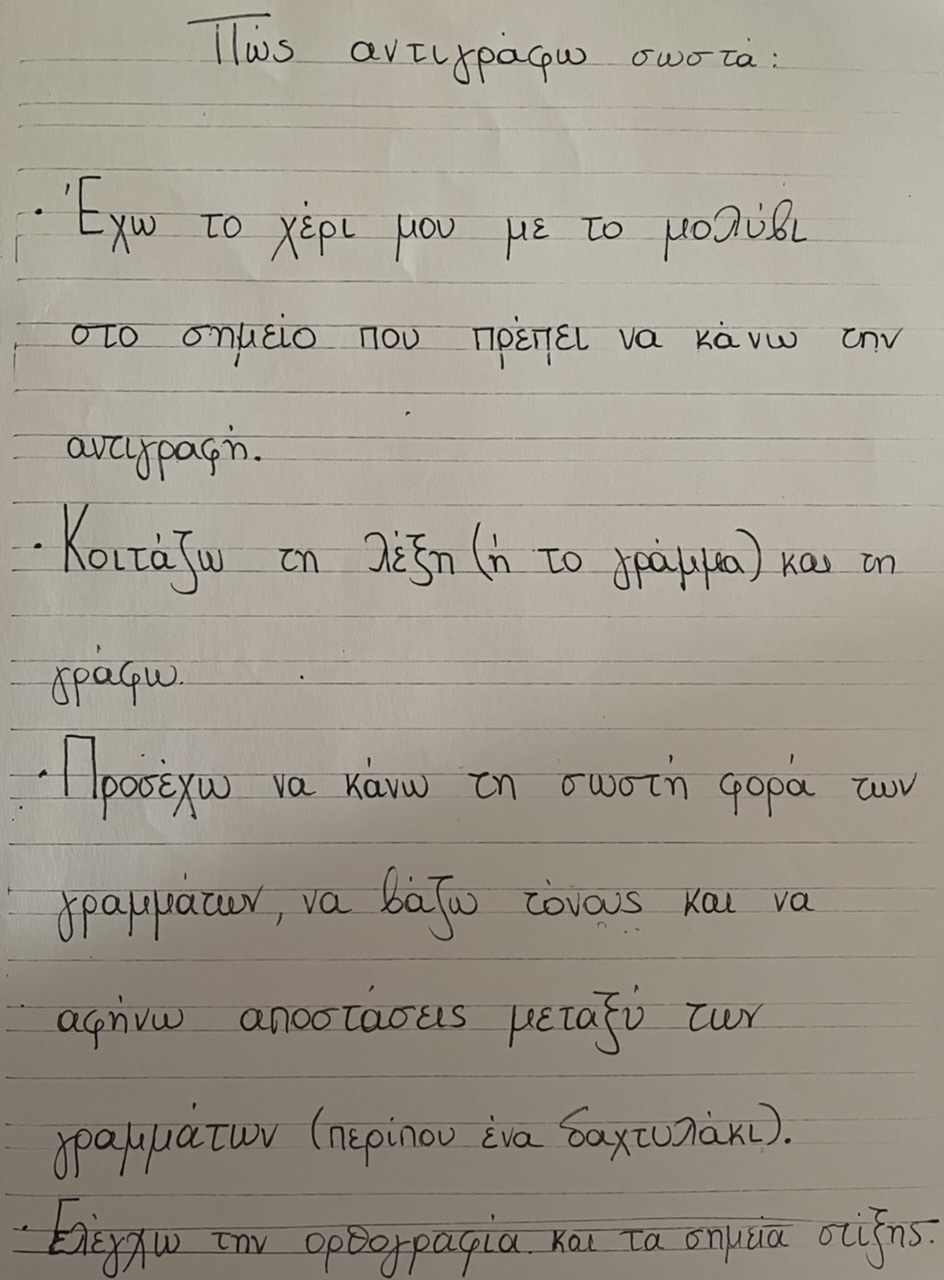 Πώς αντιγράφω σωστά:
· Έχω το χέρι μου με το μολύβι
στο σημείο που πρέπει να κάνω την
αντιγραφή.
· Κοιτάζω τη λέξη (ή το γράμμα) και τη
γράφω.
· Προσέχω να κάνω τη σωστή φορά των
γραμμάτων, να βάζω τόνους και να
αφήνω αποστάσεις μεταξύ των
γραμμάτων (περίπου ένα δαχτυλάκι).
· Ελέγχω την ορθογραφία και τα σημεία στίξης.